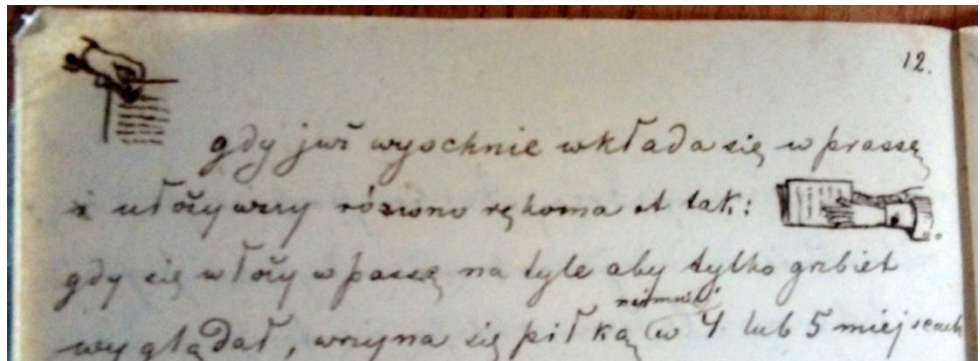 12.
gdy już wyschnie wkłada się w prassę
i ułożywszy równo rękoma ot tak:
gdy się włoży w passę na tyle aby tylko grzbiet
najmniéj
wyglądał, wrzyna się piłką w 4 lub 5 miejscach